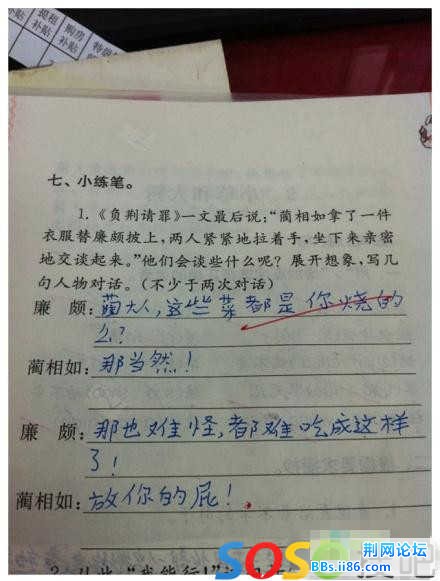 提租
补贴
购房
补贴
七、小练笔。
1.《负荆请罪》一文最后说:“蔺相如拿了一件
衣服替廉颇披上,两人紧紧地拉着手,坐下来亲密
地交谈起来。”他们会谈些什么呢?展开想象,写几
句人物对话。(不少于两次对话)
廉 颇:蔺大人,这些菜都是你烧的
么?
蔺相如:那当然!
廉 颇:那也难怪,都难吃成这样
了!
蔺相如:放你的屁!
SOSO
吧
荆网论坛
BBs.ii86.com